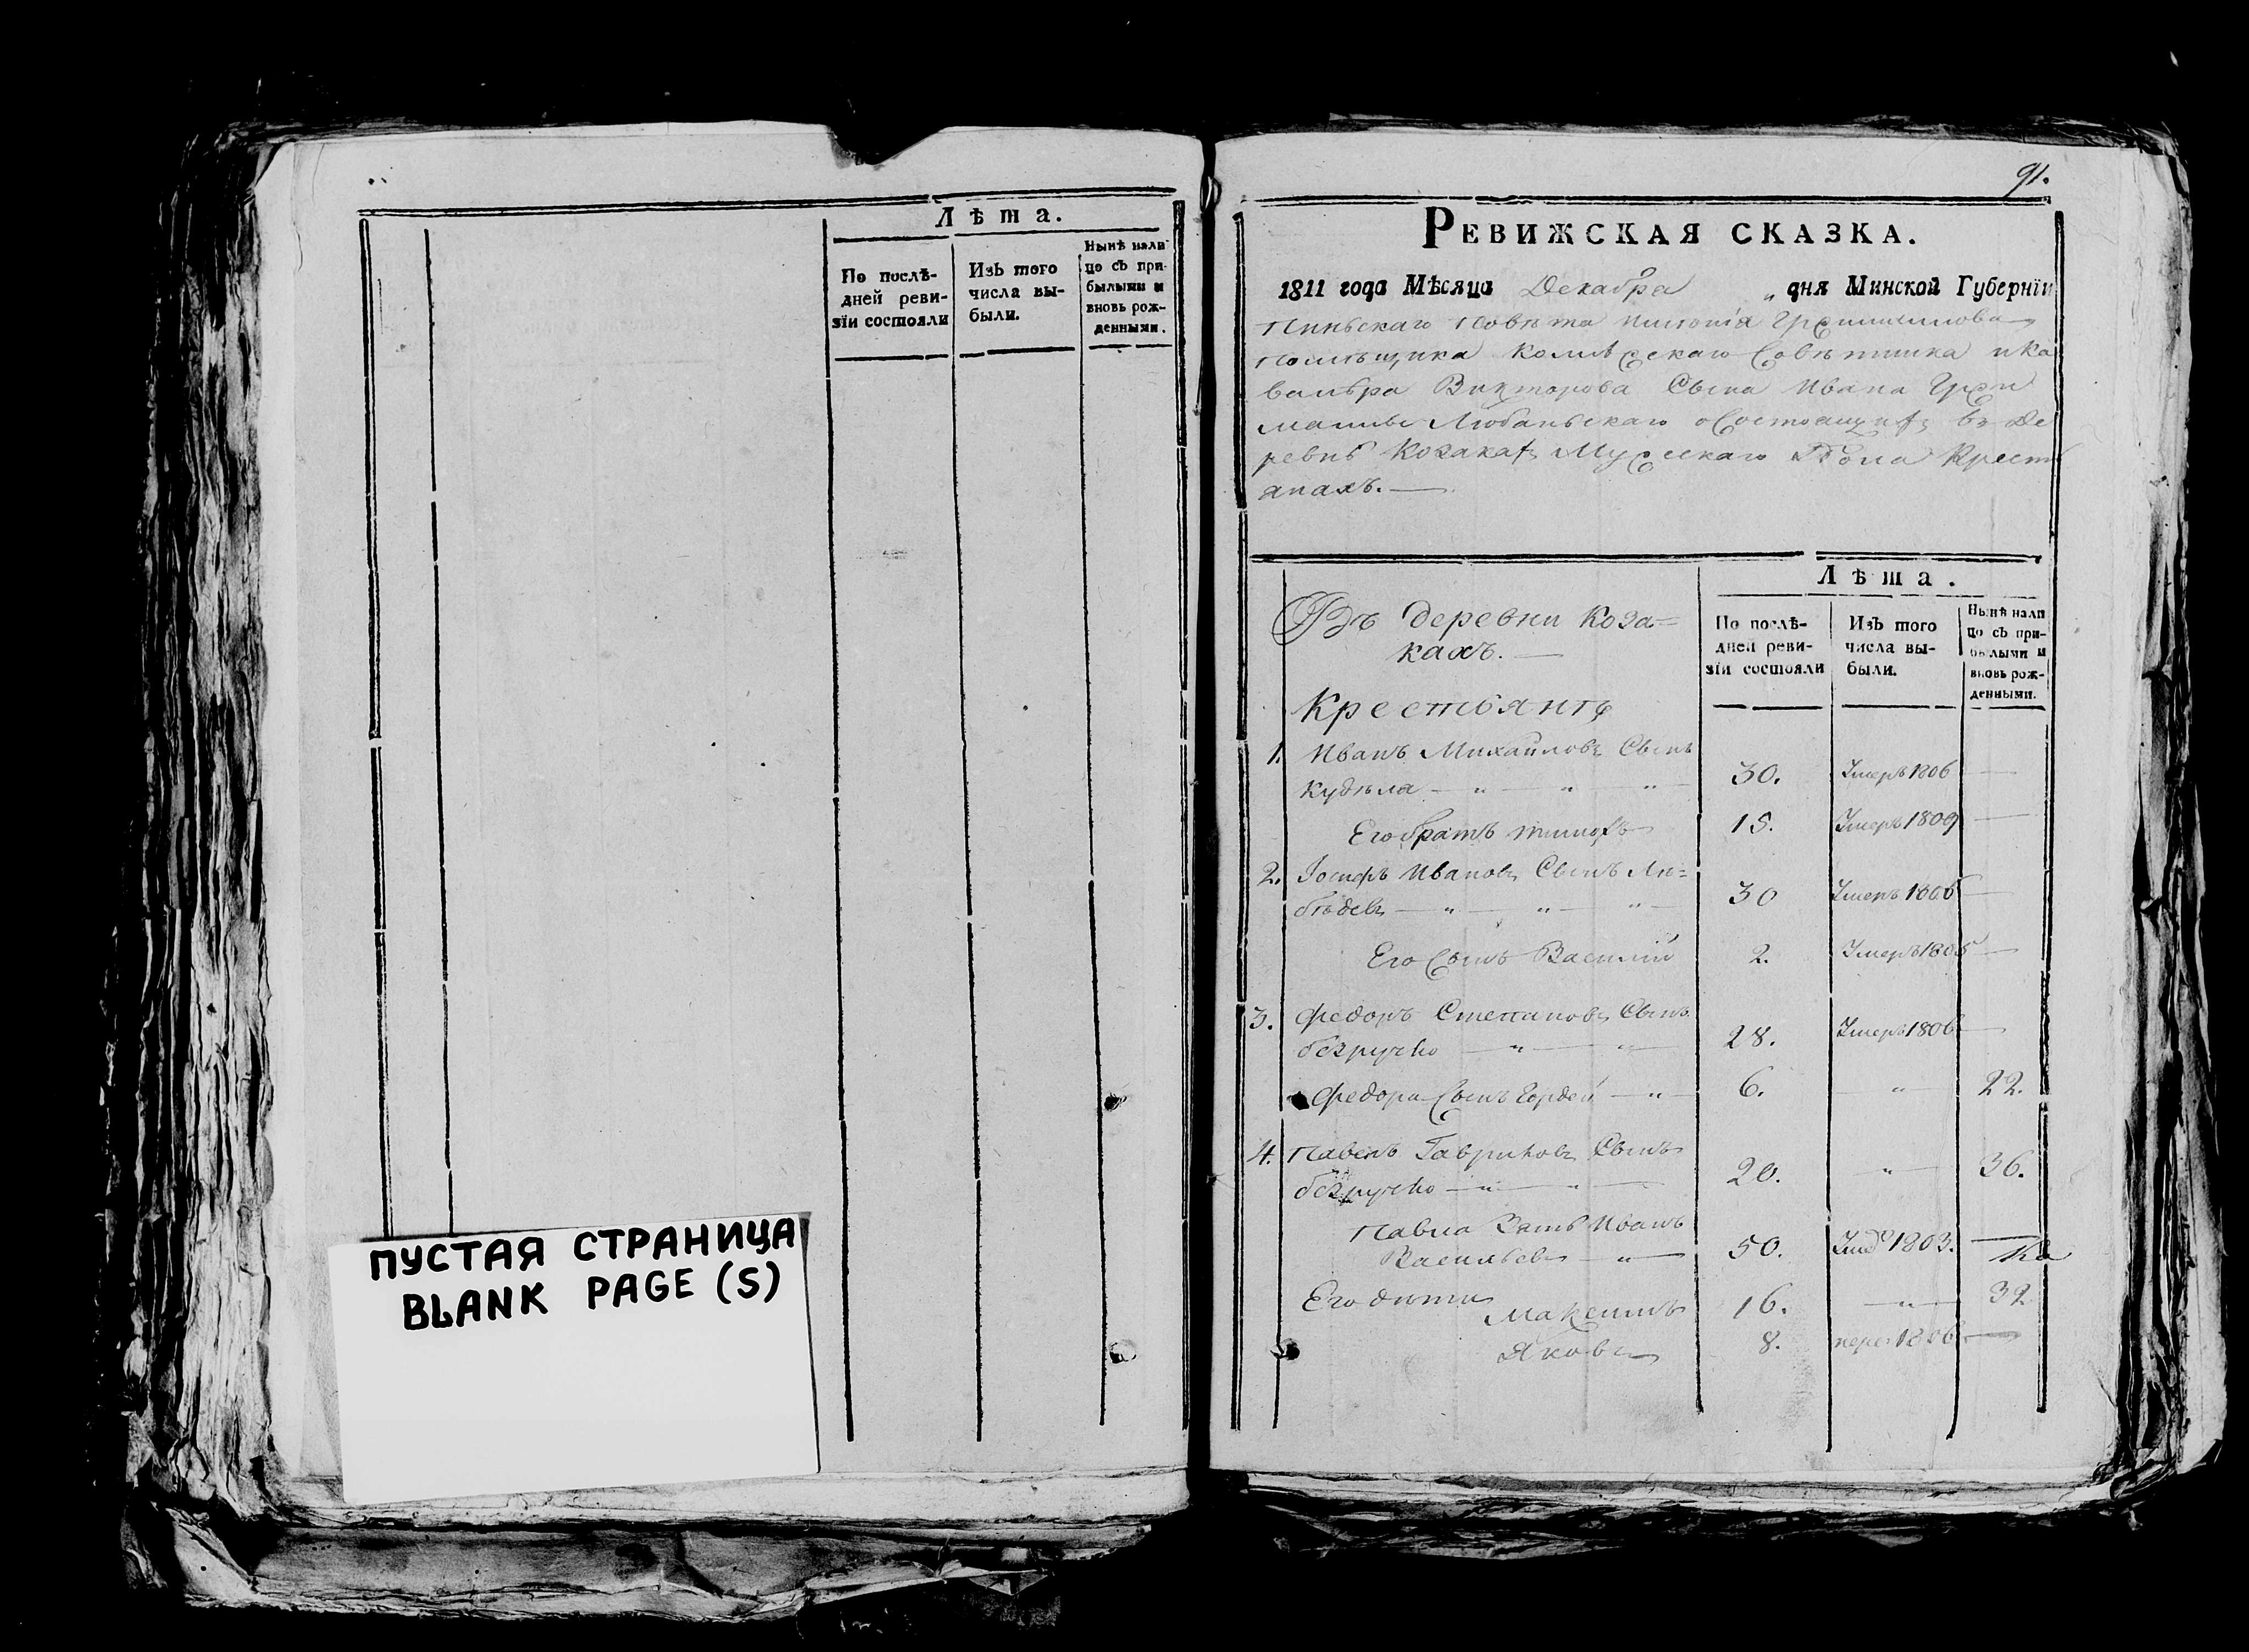 Лѣта.
По послѣ-
дней реви-
зїи состояли
Изъ того
числа вы-
были.
Нынѣ нали
цо съ при-
былыми и
вновь рож-
денными.
ПУСТАЯ СТРАНИЦА
BLANK PAGE (S)
91.
РЕВИЖСКАЯ СКАЗКА.
1811 года Мѣсяца Декабря „ дня Минской Губернїи
Пинскаго Повѣта имѣнія
Помѣщика Колѣжскаго Совѣтника и Ка
валѣра Викторова Сына Ивана
Любаньскаго о Состоящихъ въ Де
ревнѣ Козакахъ Мужескаго Пола Крест
янахъ. —
Лѣта.
Въ деревни Коза=
кахъ. —
По послѣ-
дней реви-
зїи состояли
Изъ того
числа вы-
были.
Нынѣ нали
цо съ при-
былыми и
вновь рож-
денными.
Крестьянѣ
1. Иванъ Михайловъ Сынъ
Кудѣла — „ — „ — „ 30. Умеръ 1806 —
Его братъ Тимохъ 15. Умеръ 1809 —
2. Іосифъ Ивановъ Сынъ Ли=
бѣдевъ — „ — „ — „ 30 Умеръ 1806 —
Его Сынъ Василий 2. Умеръ 1805 —
3. Федоръ Степановъ Сынъ
безручко — „ — „ 28. Умеръ 1806 —
Федора Сынъ Гордей — „ 6. „ 22.
4. Павелъ Гавриловъ Сынъ
безручко — „ — „ 20. „ 36.
Павла Зять Иванъ
Васильевъ — „ 50. 1803. —
Его дѣти
Максимъ 16. „ 32
Яковъ 8. 1806 —